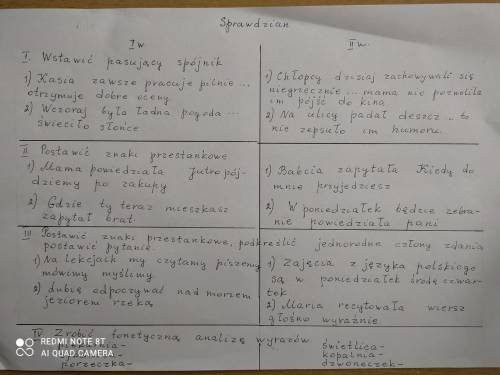 Sprawdzian
I w.
II w.
I. Wstawić pasujący spójnik
1) Kasia zawsze pracuje pilnie ...
otrzymuje dobre oceny
2) Wczoraj była ładna pogoda ...
świeciło słońce
1) Chłopcy dzisiaj zachowywali się
niegrzecznie ... mama nie pozwoliła
im pójść do kina
2) Na ulicy padał deszcz .. to
nie zepsuło im humoru.
II Postawić znaki przestankowe
1) Mama powiedziała Jutro pój-
dziemy po zakupy
2) Gdzie ty teraz mieszkasz
zapytał brat
1) Babcia zapytała Kiedy do
mnie przyjedziesz
2) W poniedziałek będzie zebra-
nie powiedziała pani
III Postawić znaki przestankowe, podkreślić jednorodne człony zdania
postawić pytanie.
1) Na lekcjach my czytamy piszemy
mówimy myślimy
2) Lubię odpoczywać nad morzem
jeziorem rzeką
1) Zajęcia z języka polskiego
są w poniedziałek środę czwar-
tek
2) Maria recytowała wiersz
głośno wyraźnie.
IV Zrobić fonetyczną analizę wyrazów
porzeczka-
świetlica-
kopalnia-
dzwoneczek-
REDMI NOTE 8T
AI QUAD CAMERA